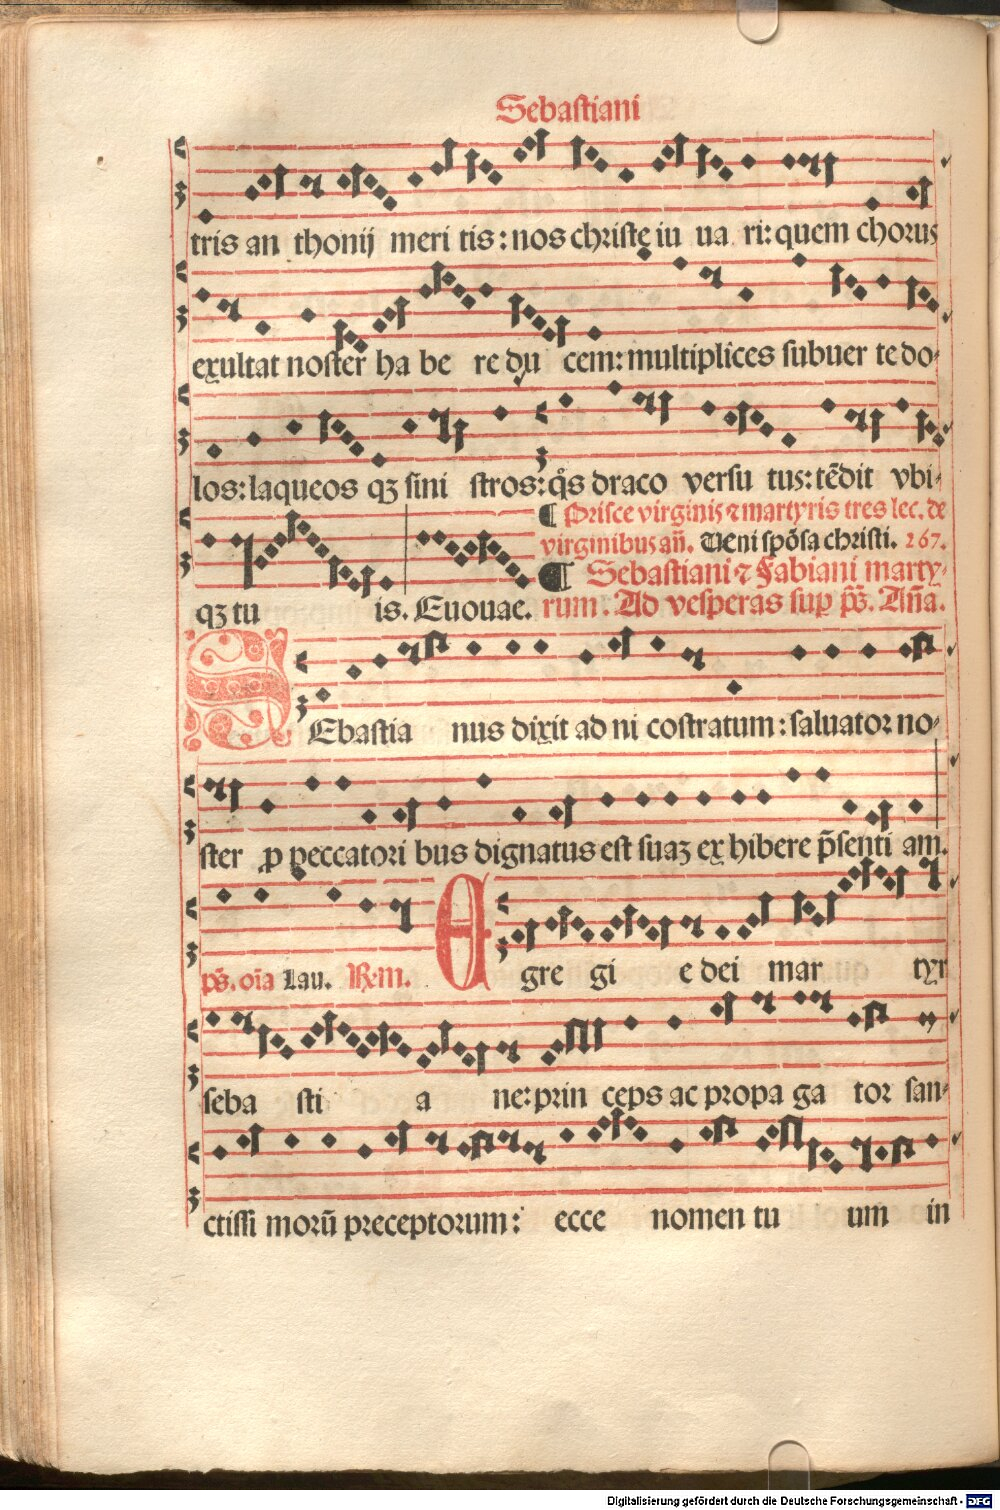 Sebastiani
tris an thonij meri tis: nos christe iu ua ri: quem chorus
exultat noster ha be re du cem: multiplices subuer te do-
los: laqueos qꝫ sini stros: q̊s draco versu tus: tēdit vbi-
¶ Prisce virginis ⁊ martyris tres lec. de
virginibus añ. Ueni spōsa christi. 267.
¶ Sebastiani ⁊ Fabiani marty-
qꝫ tu is. Euouae. rum. Ad vesperas sup p̄s. Añа.
SEbastia nus dixit ad ni costratum: saluator no-
ster ꝓ peccatori bus dignatus est suaꝫ ex hibere p̄senti am.
p̄s. oīa Lau. R̃m. Egre gi e dei mar tyr
seba sti a ne: prin ceps ac propa ga tor san-
ctissi morū preceptorum: ecce nomen tu um in
Digitalisierung gefördert durch die Deutsche Forschungsgemeinschaft - DFG